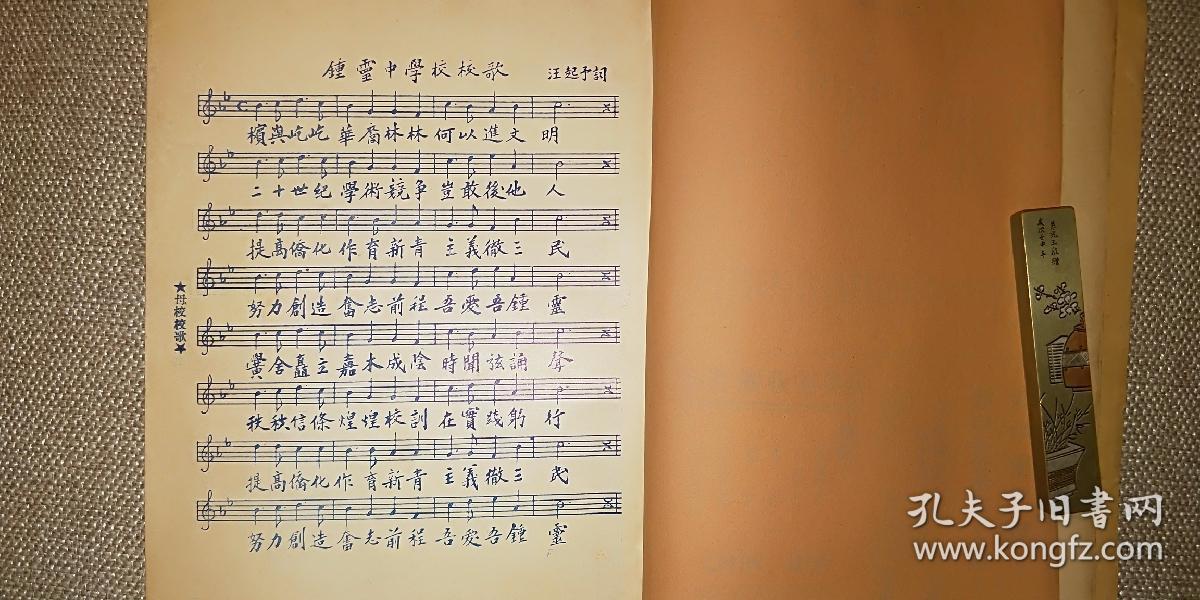 鍾靈中學校校歌 汪起予詞
檳與屹屹 華裔林林 何以進文明
二十世紀 學術競爭 豈敢後他人
提高僑化 作育新青 主義徹三民
努力創造 奮志前程 吾愛吾鍾靈
黌舍矗立 嘉木成陰 時聞弦誦聲
秩秩信條 煌煌校訓 在實踐躬行
提高僑化 作育新青 主義徹三民
努力創造 奮志前程 吾愛吾鍾靈
★母校校歌★
孔夫子旧书网
www.kongfz.com